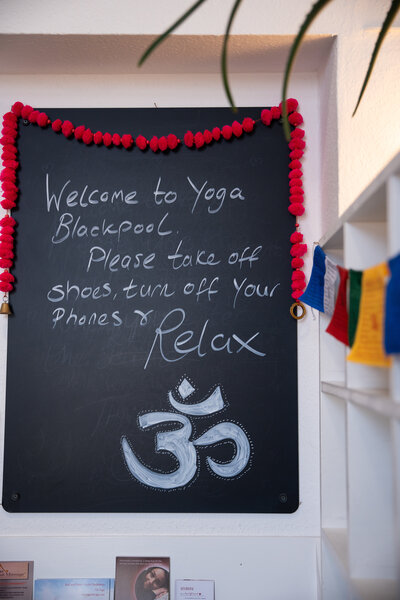 Welcome to Yoga
Blackpool.
Please take off
shoes, turn off your
Phones & Relax
ॐ